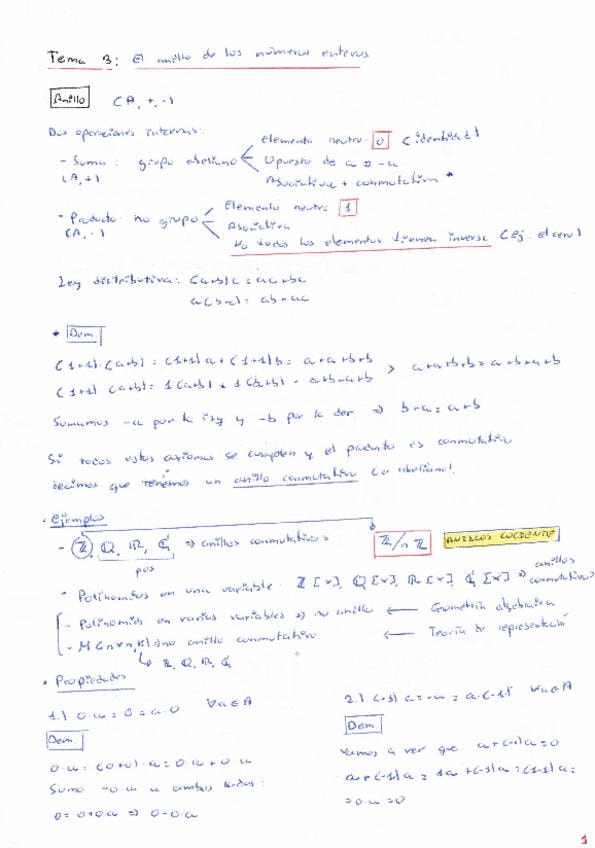 Tema 3: El anillo de los números enteros
Anillo (A, +, ·)
Dos operaciones internas:
- Suma: grupo abeliano
(A, +)
Elemento neutro 0 (identidad)
Opuesto de a ≡ -a
Asociativa + conmutativa *
- Producto: no grupo
(A, ·)
Elemento neutro 1
Asociativa
No todos los elementos tienen inverso (Ej. el cero)
Ley distributiva: (a+b)c = ac+bc
a(b+c) = ab+ac
* Dem.
(1+1)·(a+b) = (1+1)a + (1+1)b = a+a+b+b
(1+1)·(a+b) = 1(a+b) + 1(a+b) = a+b+a+b
a+a+b+b = a+b+a+b
Sumamos -a por la izq y -b por la der ⇒ b+a = a+b
Si todos estos axiomas se cumplen y el producto es conmutativo
decimos que tenemos un anillo conmutativo (o abeliano).
· Ejemplos
- ℤ, ℚ, ℝ, ℂ ⇒ anillos conmutativos ℤ/nℤ ANILLOS COCIENTE
- Polinomios en una variable: ℤ[x], ℚ[x], ℝ[x], ℂ[x] ⇒ anillos conmutativos
- Polinomios en varias variables ⇒ no anillo ← Geometría algebraica
- M(n×n, K) ⇒ no anillo conmutativo ← Teoría de representación
↳ ℤ, ℚ, ℝ, ℂ
· Propiedades
1.) 0·a = 0 = a·0 ∀a∈A
Dem.
0·a = (0+0)·a = 0·a + 0·a
Sumo -0·a a ambos lados:
0 = 0+0·a ⇒ 0=0·a
2.) (-1)a = -a = a·(-1) ∀a∈A
Dem.
Vamos a ver que a+(-1)a = 0
a+(-1)a = 1a+(-1)a = (1-1)a =
= 0·a = 0
1